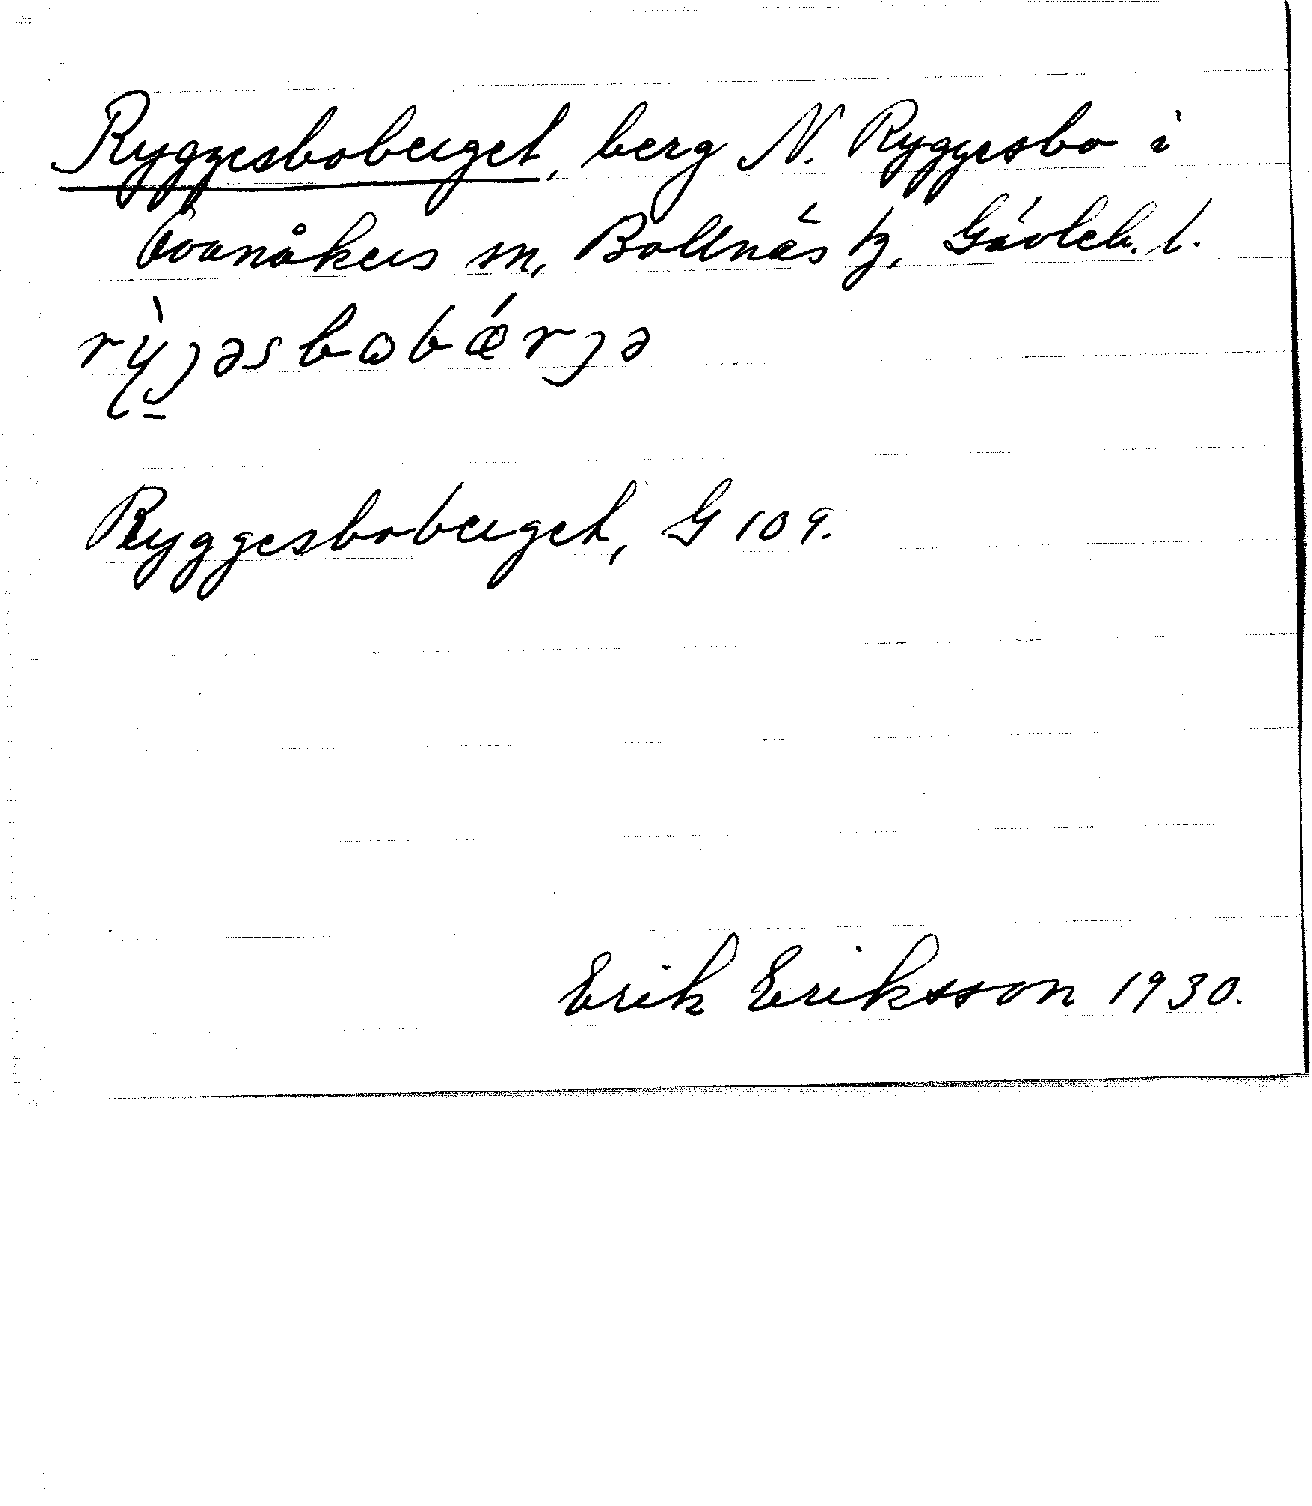 Ryggesboberget, berg N. Ryggesbo i
Ovanåkers sn, Bollnäs tg, Gävleb. l.
rỳ̱ȷəsbωbǽrȷə
Ryggesboberget, G 109.
Erik Eriksson 1930.